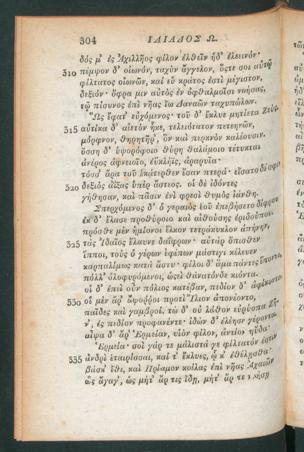 304 ΙΛΙΑΔΟΣ Ω.
δός μ' ἐς Ἀχιλλῆος φίλον ἐλθεῖν ἠδ' ἐλεινόν·
310 πέμψον δ' οἰωνόν, ταχὺν ἄγγελον, ὅστε σοι αὐτῷ
φίλτατος οἰωνῶν, καὶ εὑ κράτος ἐστὶ μέγιστον,
δεξιόν· ὄφρα μιν αὐτὸς ἐν ὀφθαλμοῖσι νοήσας,
τῷ πίσυνος ἐπὶ νῆας ἴω Δαναῶν ταχυπώλων.
Ὣς ἔφατ' εὐχόμενος· τοῦ δ' ἔκλυε μητίετα Ζεύς
315 αὐτίκα δ' αἰετὸν ἧκε, τελειότατον πετεηνῶν,
μόρφνον, θηρητῆρ', ὃν καὶ περκνὸν καλέουσιν.
ὅσση δ' ὑψορόφοιο θύρη θαλάμοιο τέτυκται
ἀνέρος ἀφνειοῖο, εὐκληῒς, ἀραρυῖα·
τόσσ' ἄρα τοῦ ἑκάτερθεν ἔσαν πτερά· εἴσατο δέ σφιν
320 δεξιὸς ἀΐξας ὑπὲρ ἄστεος. οἱ δὲ ἰδόντες
γήθησαν, καὶ πᾶσιν ἐνὶ φρεσὶ θυμὸς ἰάνθη.
Σπερχόμενος δ' ὁ γεραιὸς ἑοῦ ἐπεβήσετο δίφρου
ἐκ δ' ἔλασε προθύροιο καὶ αἰθούσης ἐριδούπου.
πρόσθε μὲν ἡμίονοι ἕλκον τετράκυκλον ἀπήνην,
325 τὰς Ἰδαῖος ἔλαυνε δαΐφρων· αὐτὰρ ὄπισθεν
ἵπποι, τοὺς ὁ γέρων ἐφέπων μάστιγι κέλευεν
καρπαλίμως κατὰ ἄστυ· φίλοι δ' ἅμα πάντες ἕποντο
πόλλ' ὀλοφυρόμενοι, ὡσεὶ θάνατόνδε κιόντα.
οἱ δ' ἐπεὶ οὖν πόλιος κατέβαν, πεδίον δ' ἀφίκοντο
330 οἱ μὲν ἄρ' ἄψοῤῥοι προτὶ Ἴλιον ἀπονέοντο,
παῖδες καὶ γαμβροί. τὼ δ' οὐ λάθον εὐρύοπα Ζῆ-
ν', ἐς πεδίον προφανέντε· ἰδὼν δ' ἐλέησε γέροντα.
αἶψα δ' ἄρ' Ἑρμείαν, υἱὸν φίλον, ἀντίον ηὔδα·
Ἑρμεία· σοὶ γάρ τε μάλιστά γε φίλτατόν ἐστιν
335 ἀνδρὶ ἑταιρίσσαι, καί τ' ἔκλυες, ᾧ κ' ἐθέλῃσθα·
βάσκ' ἴθι, καὶ Πρίαμον κοίλας ἐπὶ νῆας Ἀχαιῶν
ὣς ἄγαγ', ὡς μήτ' ἄρ τις ἴδῃ, μήτ' ἄρ τε νοήσῃ